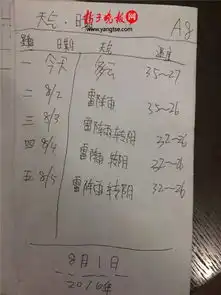 扬子晚报网
www.yangtse.com
天气·日期
A8
日期 天气 温度
一 今天 多云 35~27
二 8/2 雷阵雨 35~26
三 8/3 雷阵雨转阴 32~26
四 8/4 雷阵雨 转阴 32~26
五 8/5 雷阵雨 转阴 32~26
8月1日
2016年